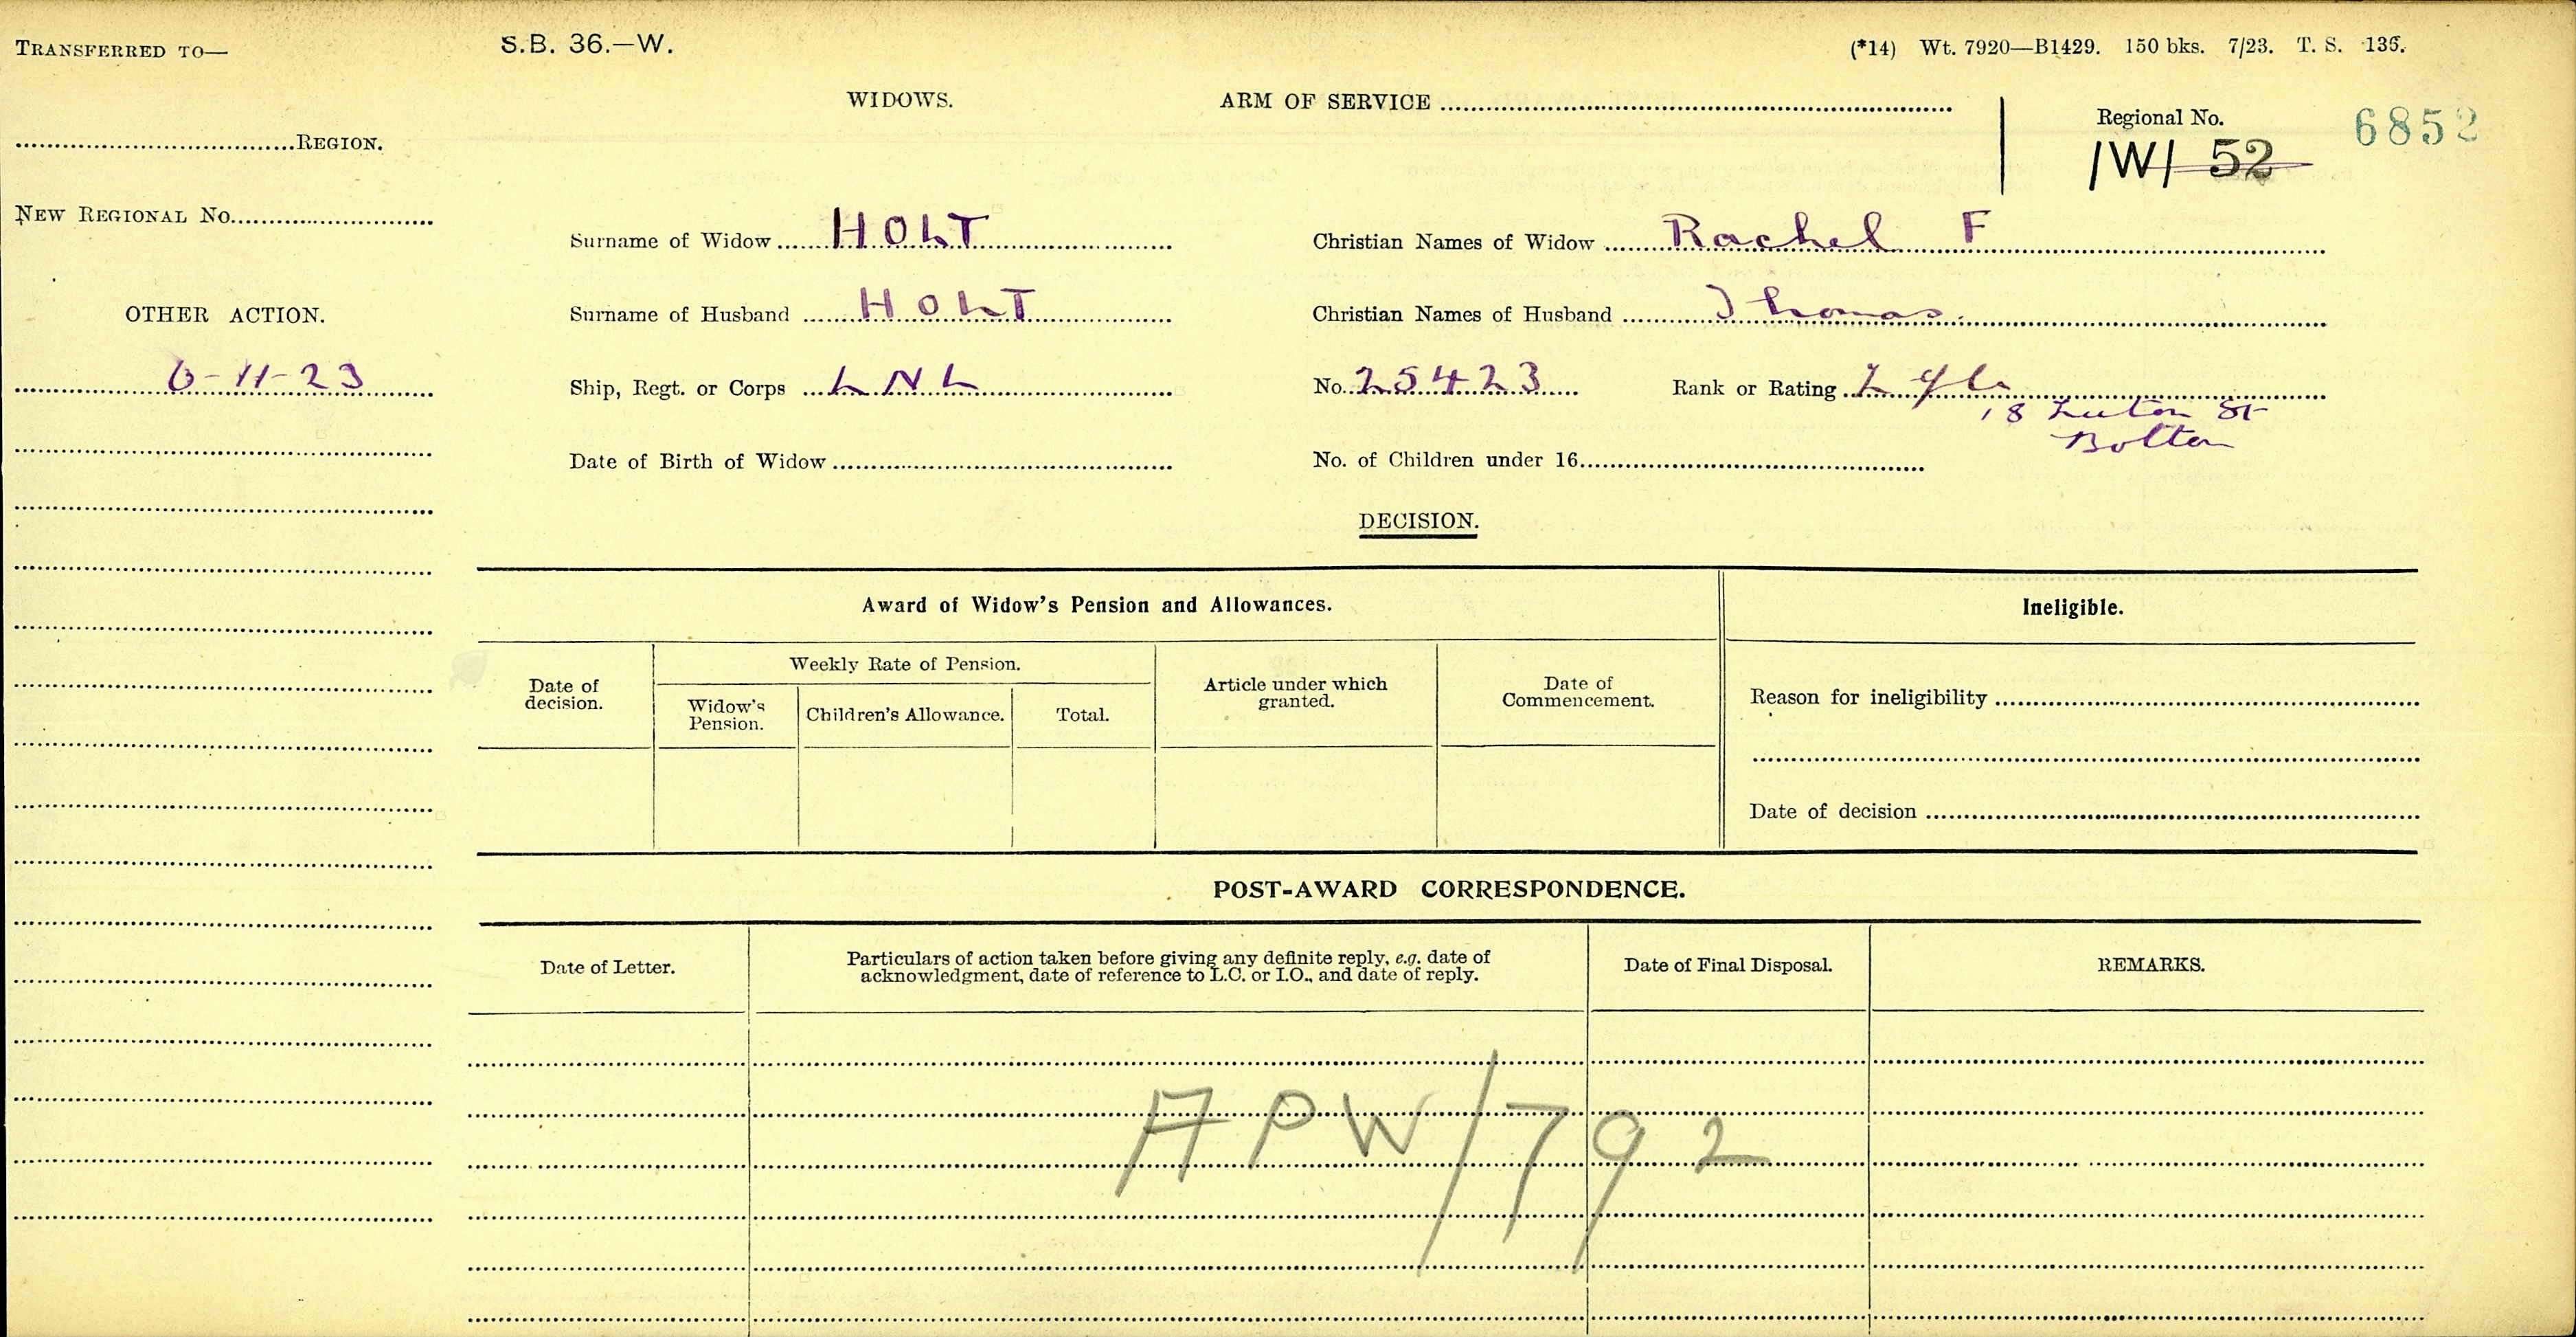 TRANSFERRED TO—
S.B. 36.—W.
(*14) Wt. 7920—B1429. 150 bks. 7/23. T. S. 135.
WIDOWS.
ARM OF SERVICE
Regional No.
6852
/W/ 52
REGION.
NEW REGIONAL NO.
Surname of Widow HOLT
Christian Names of Widow Rachel F
OTHER ACTION.
Surname of Husband HOLT
Christian Names of Husband Thomas.
6-11-23
Ship, Regt. or Corps L N L
No. 25423
Rank or Rating L/Cpl
18 Luton St
Bolton
Date of Birth of Widow
No. of Children under 16
DECISION.
Award of Widow's Pension and Allowances.
Ineligible.
Date of decision.
Weekly Rate of Pension.
Widow's Pension.
Children's Allowance.
Total.
Article under which granted.
Date of Commencement.
Reason for ineligibility
Date of decision
POST-AWARD CORRESPONDENCE.
Date of Letter.
Particulars of action taken before giving any definite reply, e.g. date of
acknowledgment, date of reference to L.C. or I.O., and date of reply.
Date of Final Disposal.
REMARKS.
APW/792